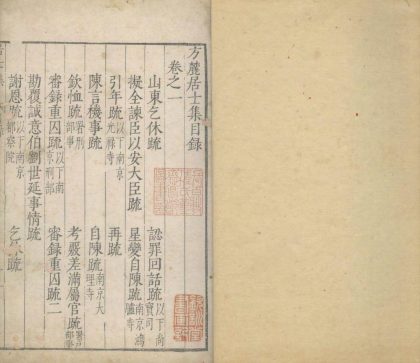 方麓居士集目錄
卷之一
山東乞休疏 認罪回話疏以下尚寶司
擬全諫臣以安大臣疏 星變自陳疏南京鴻臚寺
引年疏以下南京光祿寺 再疏
陳言機事疏 自陳疏南京大理寺
欽恤疏署刑部事 考覈差滿屬官疏
審錄重囚疏以下南京刑部 審錄重囚疏二
勘覆誠意伯劉世延事情疏
謝恩疏以下南京都察院 乞休疏